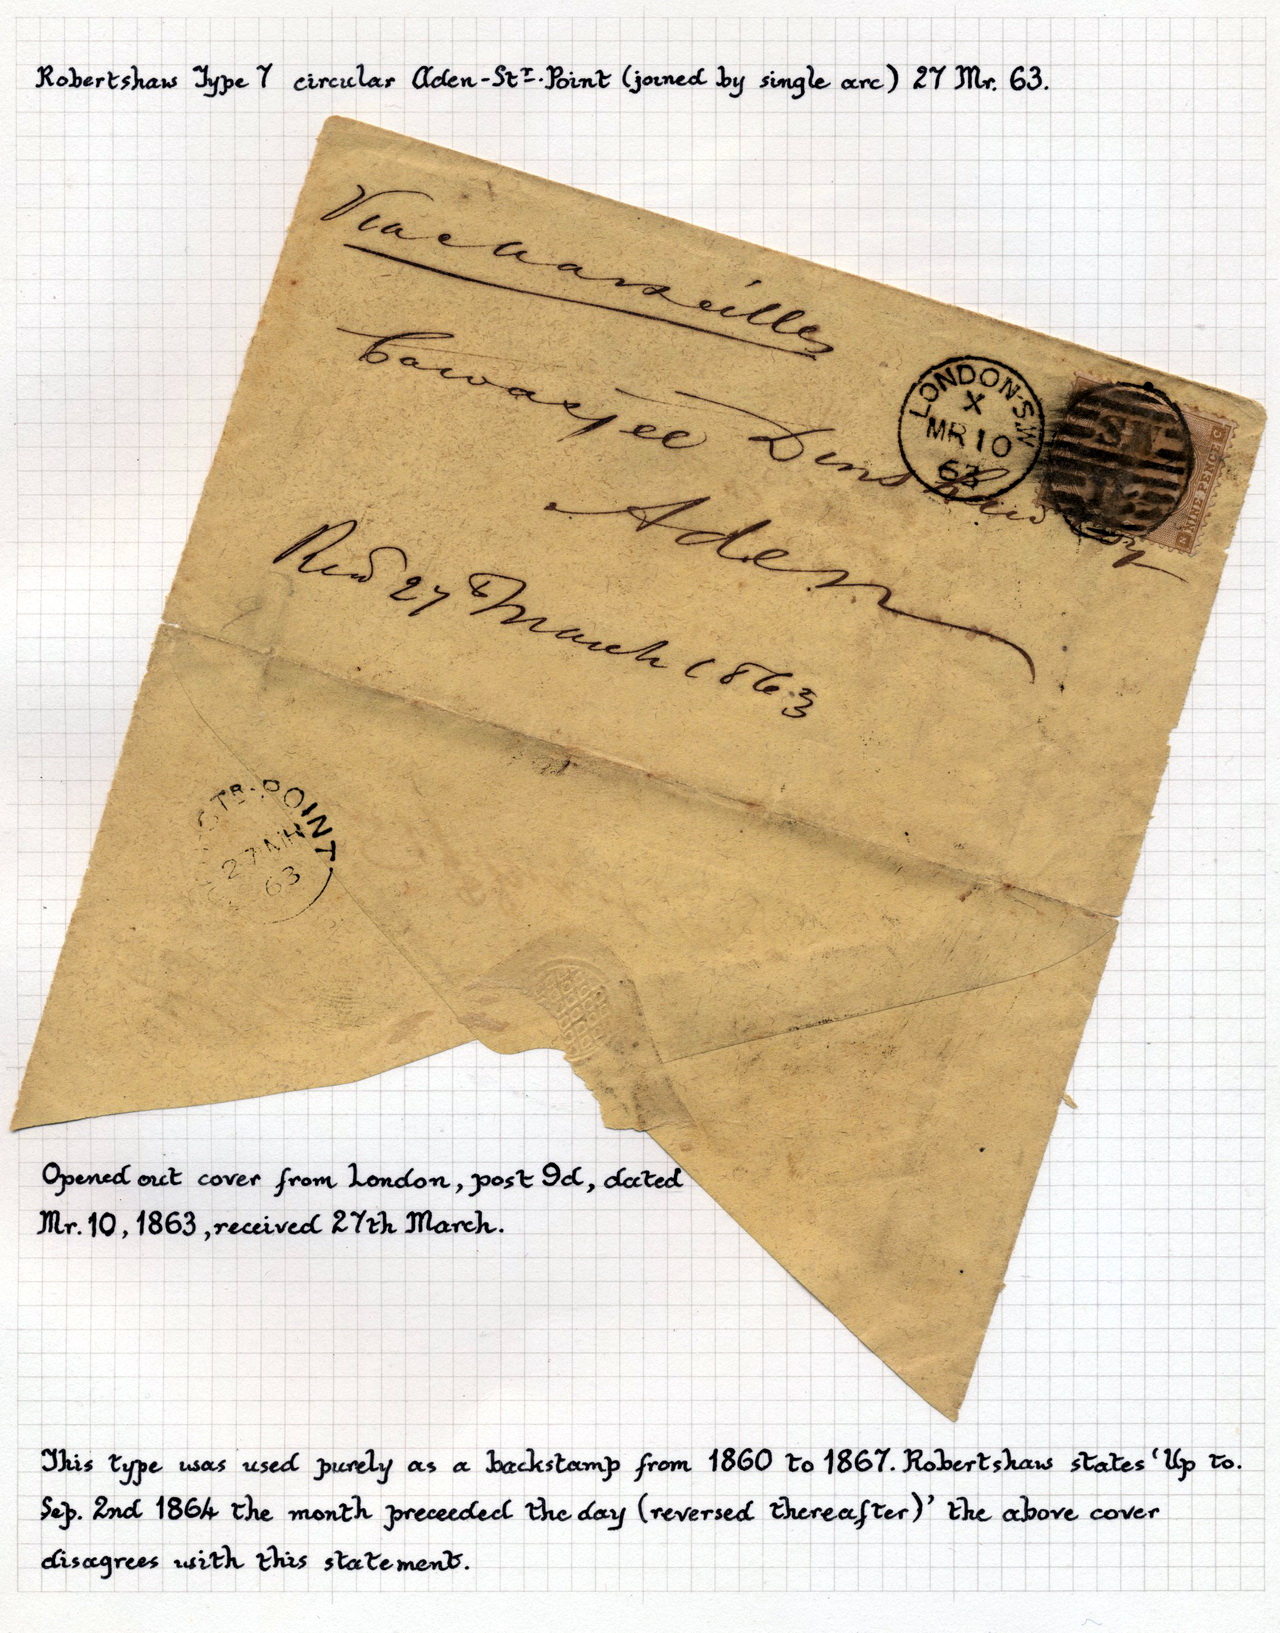 Robertshaw Type 7 circular Aden-Str.Point (joined by single arc) 27 Mr. 63.
Via Marseilles
LONDON-S.W
X
MR 10
63
S.W
NINE PENCE
Cowasjee Dinshaw
Aden
Recd 27th March 1863
STR-POINT
27 MR
63
Opened out cover from London, post 9d, dated
Mr. 10, 1863, received 27th March.
This type was used purely as a backstamp from 1860 to 1867. Robertshaw states 'Up to.
Sep. 2nd 1864 the month preceeded the day (reversed thereafter)' the above cover
disagrees with this statement.